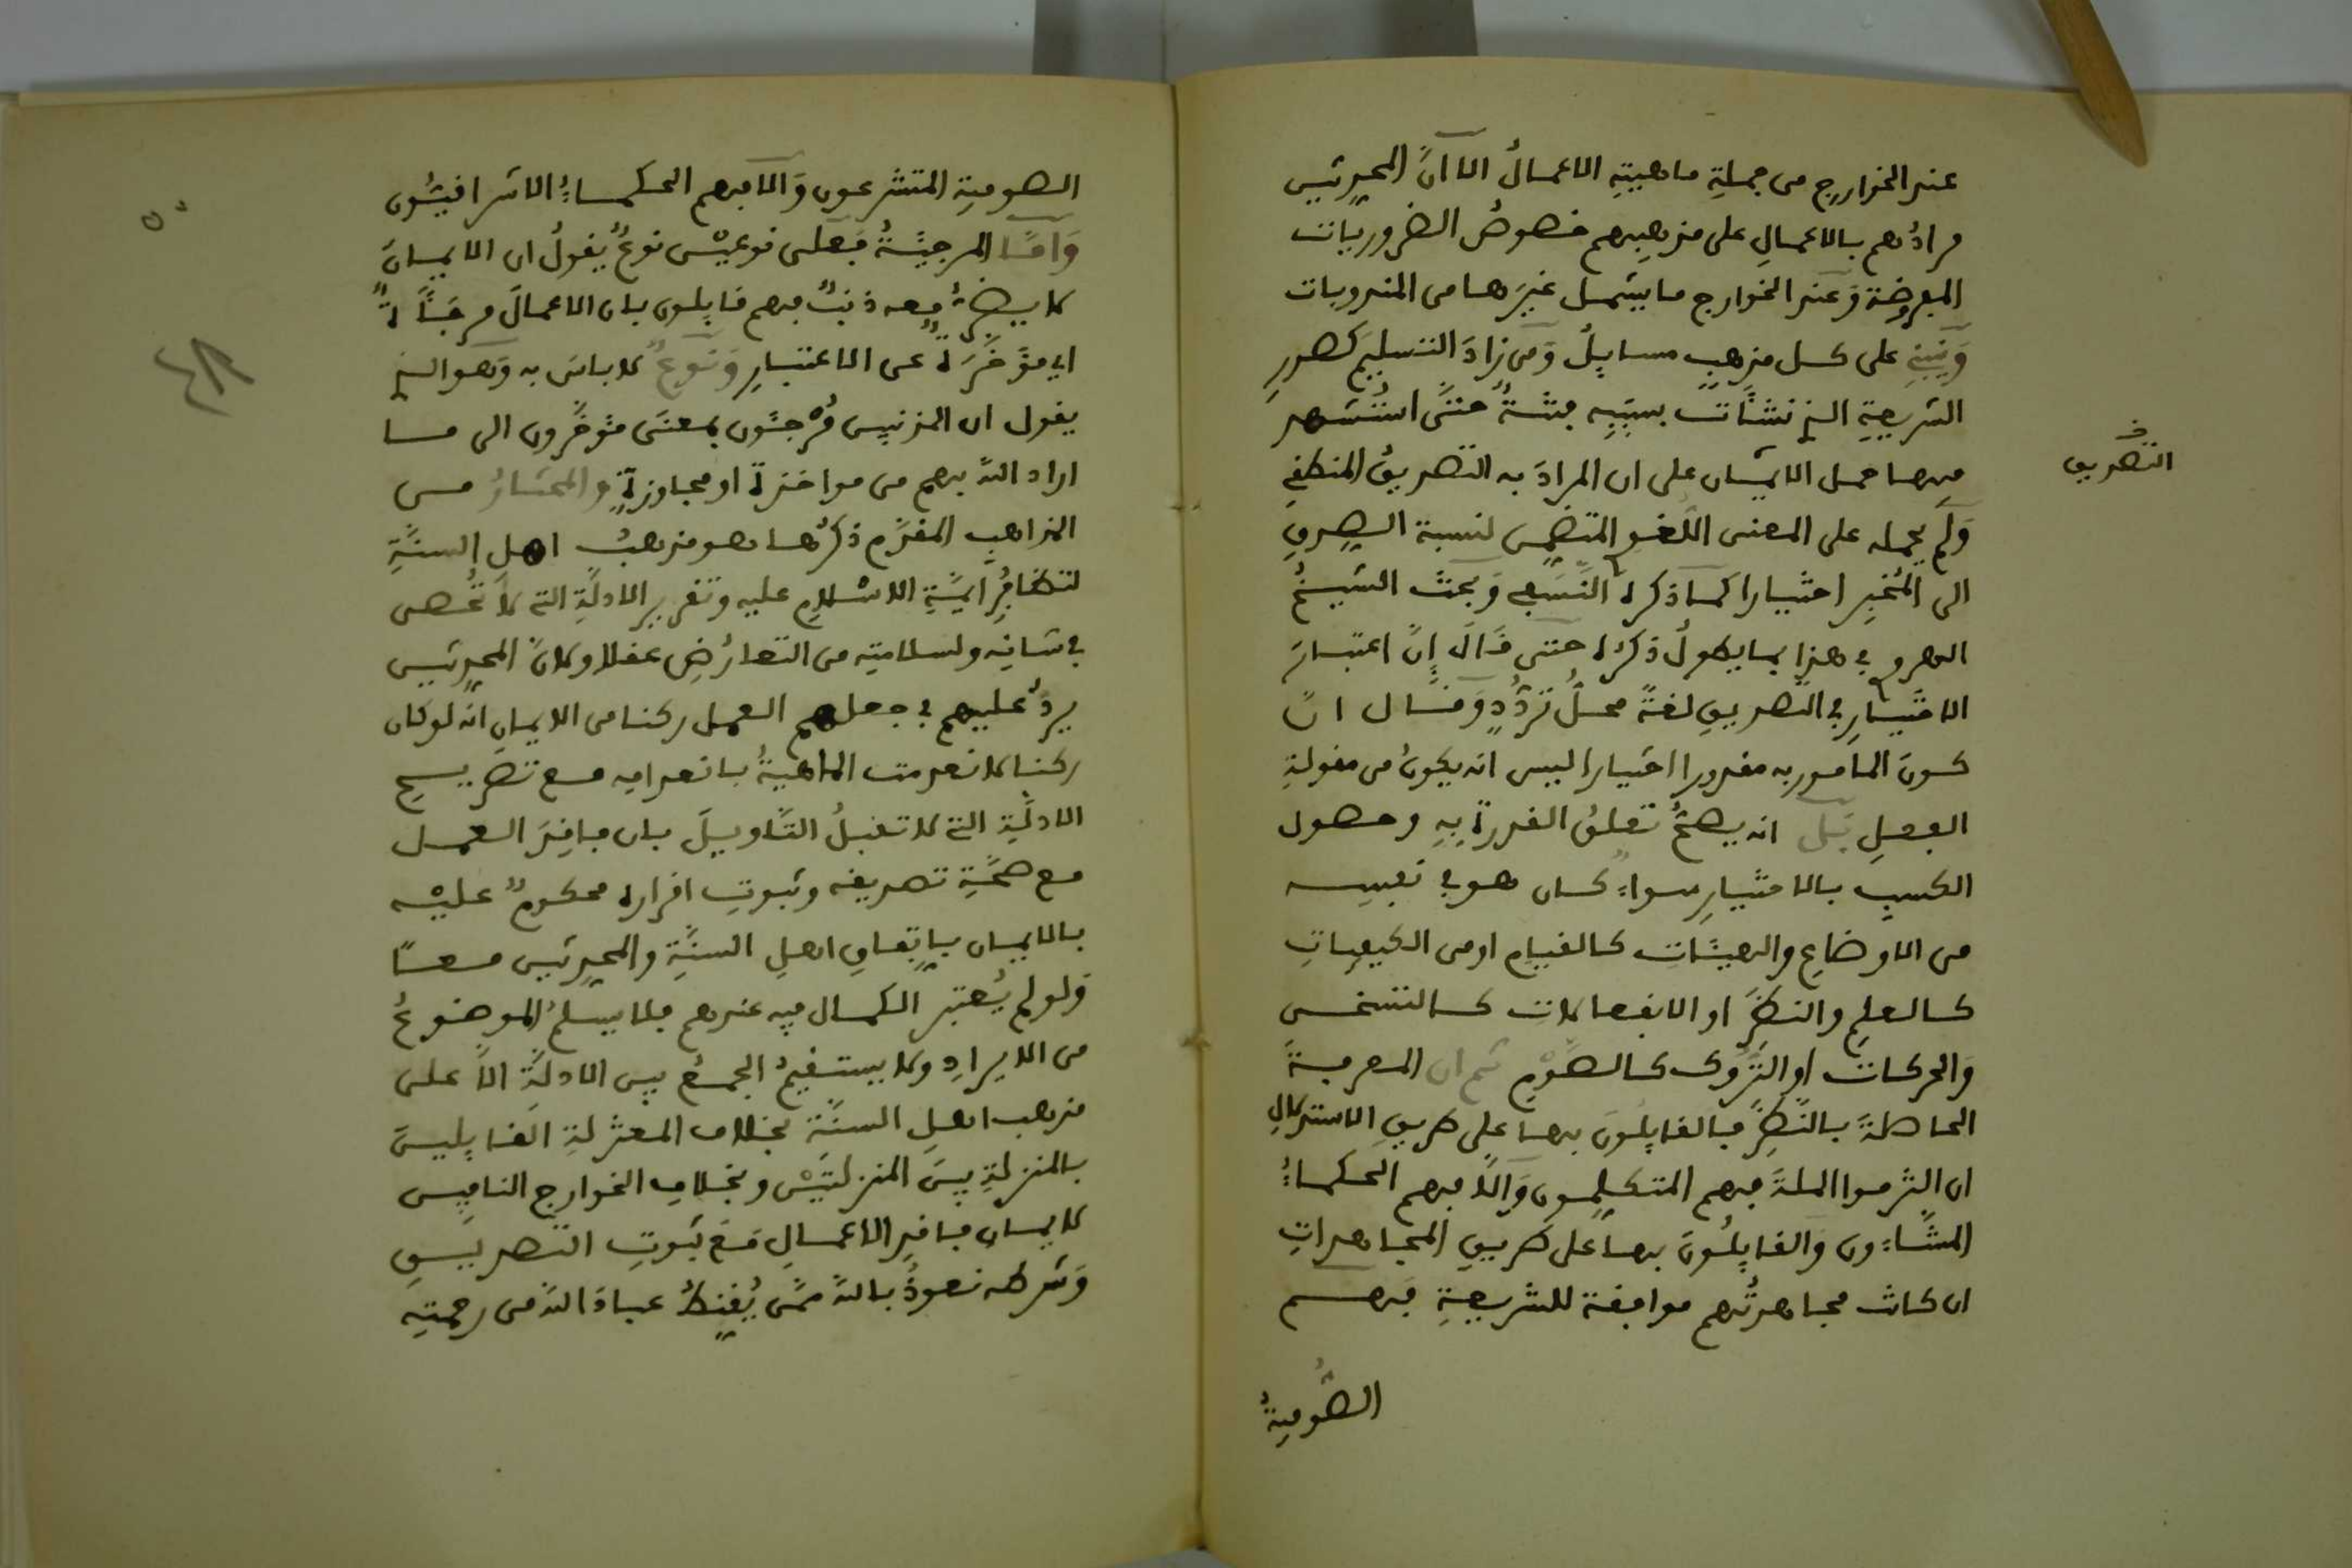 عند الخوارج من جملة ماهيته الاعمال الا ان المحدثين
مرادهم بالاعمال على مذهبهم خصوص الضروريات
المفروضة وعند الخوارج ما يشمل غيرها من المندوبات
وينبني على كل مذهب مسايل ومن زاد التسليم كصدر
الشريعة الذي نشأت بسببه فتنة حتى استشهد
فيها حمل الايمان على ان المراد به التصديق المنطقي
ولم يحمله على المعنى اللغو المتضمن لنسبة الصدق
الى المخبر اختيارا كما ذكره النسفي وبحث الشيخ
الهروي في هذا بما يطول ذكره حتى قال إن اعتبار
الاختيار في التصديق لغة محل تردد وقال ان
كون المامور به مقدورا اختيارا ليس انه يكون من مقولة
الفعل بل انه يصح تعلق القدرة به وحصول
الكسب بالاختيار سواء كان هو في نفسه
من الاوضاع والهيئات كالقيام او من الكيفيات
كالعلم والنظر او الانفعالات كالتسخن
والحركات او التروك كالصوم ثم ان المعرفة
الحاصلة بالنظر فالقايلون بها على طريق الاستدلال
ان التزموا الملة فهم المتكلمون والا فهم الحكماء
المشاءون والقايلون بها على طريق المجاهدات
ان كانت مجاهدتهم موافقة للشريعة فهم
الصوفية
التصديق
الصوفية المتشرعون والا فهم الحكماء الاشراقيون
واما المرجئة فعلى نوعين نوع يقول ان الايمان
لا يضر معه ذنب فهم قايلون بان الاعمال مرجأة
اي مؤخرة عن الاعتبار ونوع لا باس به وهو الذي
يقول ان المذنبين مرجئون بمعنى مؤخرون الى ما
اراد الله بهم من مواخذة او مجاوزة والمختار من
المذاهب المقدم ذكرها هو مذهب اهل السنة
لتظافر ايمة الاسلام عليه وتقرير الادلة التي لا تحصى
في شانه ولسلامته من التعارض عقلا ولان المحدثين
يرد عليهم في جعلهم العمل ركنا من الايمان انه لو كان
ركنا لانعدمت الماهية بانعدامه مع تصريح
الادلة التي لا تقبل التاويل بان فاقد العمل
مع صحة تصديقه وثبوت اقراره محكوم عليه
بالايمان باتفاق اهل السنة والمحدثين معا
ولو لم يعتبر الكمال فيه عندهم فلا يسلم الموضوع
من الايراد ولا يستقيم الجمع بين الادلة الا على
مذهب اهل السنة بخلاف المعتزلة القايلين
بالمنزلة بين المنزلتين وبخلاف الخوارج النافين
لايمان فاقد الاعمال مع ثبوت التصديق
وشرطه نعوذ بالله ممن يقنط عباد الله من رحمته